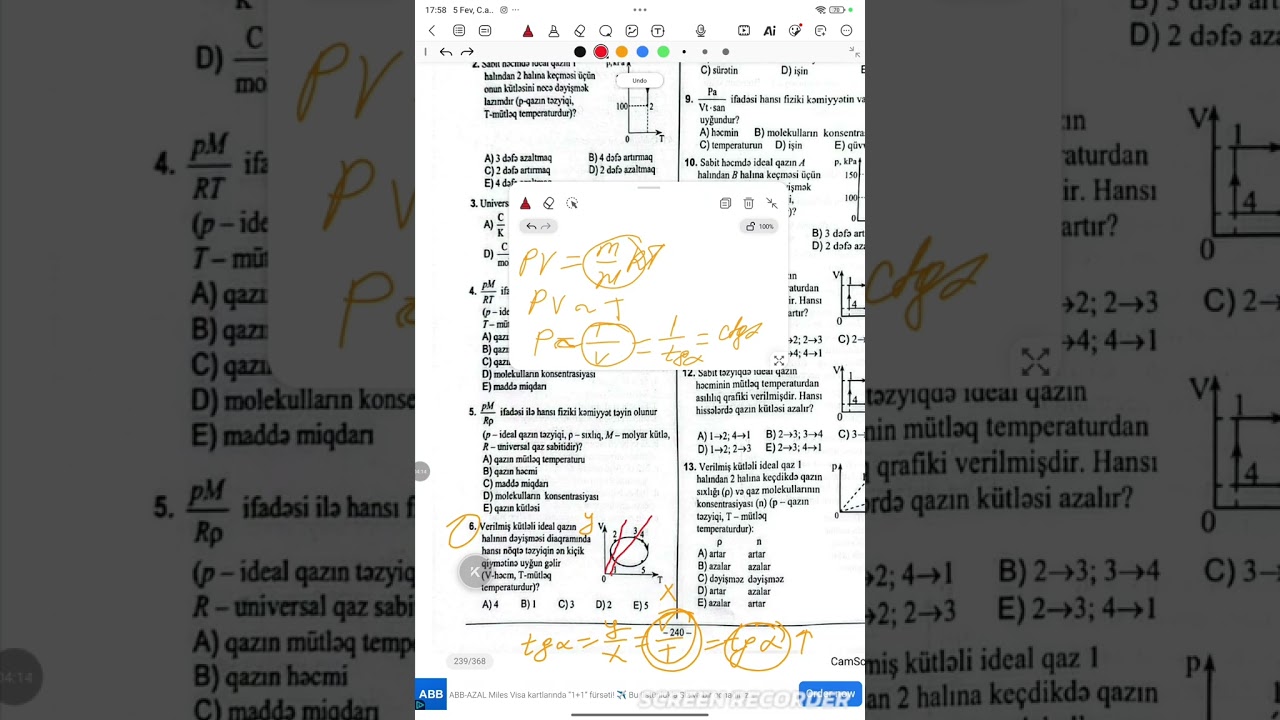 17:58 5 Fev, C.a..
Ai
Undo
2. Sabit həcmdə ideal qazın 1
halından 2 halına keçməsi üçün
onun kütləsini necə dəyişmək
lazımdır (p-qazın təzyiqi,
T-mütləq temperaturdur)?
100 2
0 T
A) 3 dəfə azaltmaq B) 4 dəfə artırmaq
C) 2 dəfə artırmaq D) 2 dəfə azaltmaq
E) 4 dəfə
3. Univers
A) C/K
D) C
4. pM/RT ifa
(p – ide
T – müt
A) qazı
B) qazı
C) qazı
D) molekulların konsentrasiyası
E) maddə miqdarı
100%
PV = m/M RT
PV ~ T
P = T/V = 1/tgα = ctgα
5. pM/Rρ ifadəsi ilə hansı fiziki kəmiyyət təyin olunur
(p – ideal qazın təzyiqi, ρ – sıxlıq, M – molyar kütlə,
R – universal qaz sabitidir)?
A) qazın mütləq temperaturu
B) qazın həcmi
C) maddə miqdarı
D) molekulların konsentrasiyası
E) qazın kütləsi
6. Verilmiş kütləli ideal qazın
halının dəyişməsi diaqramında
hansı nöqtə təzyiqin ən kiçik
qiymətinə uyğun gəlir
(V-həcm, T-mütləq
temperaturdur)?
y V 2 3 4 1 5 0 T
x
A) 4 B) 1 C) 3 D) 2 E) 5
– 240 –
tgα = y/x = V/T = tgα ↑
C) sürətin D) işin E
9. Pa/Vt·san ifadəsi hansı fiziki kəmiyyətin va
uyğundur?
A) həcmin B) molekulların konsentra
C) temperaturun D) işin E) qüv
10. Sabit həcmdə ideal qazın A
halından B halına keçməsi üçün
p, kPa
150
100
0
B) 3 dəfə art
D) 2 dəfə aza
V 1 4 0
2; 2→3 C) 2–
4; 4→1
12. Sabit təzyiqdə ideal qazın
həcminin mütləq temperaturdan
asılılıq qrafiki verilmişdir. Hansı
hissələrdə qazın kütləsi azalır?
V 1 4 0
A) 1→2; 4→1 B) 2→3; 3→4 C) 3–
D) 1→2; 2→3 E) 2→3; 4→1
13. Verilmiş kütləli ideal qaz 1
halından 2 halına keçdikdə qazın
sıxlığı (ρ) və qaz molekullarının
konsentrasiyası (n) (p – qazın
təzyiqi, T – mütləq
temperaturdur):
p
0
ρ n
A) artar artar
B) azalar azalar
C) dəyişməz dəyişməz
D) artar azalar
E) azalar artar
K
04:14
239/368
CamSc
ABB
ABB-AZAL Miles Visa kartlarında "1+1" fürsəti!
Order now
SCREEN RECORDER